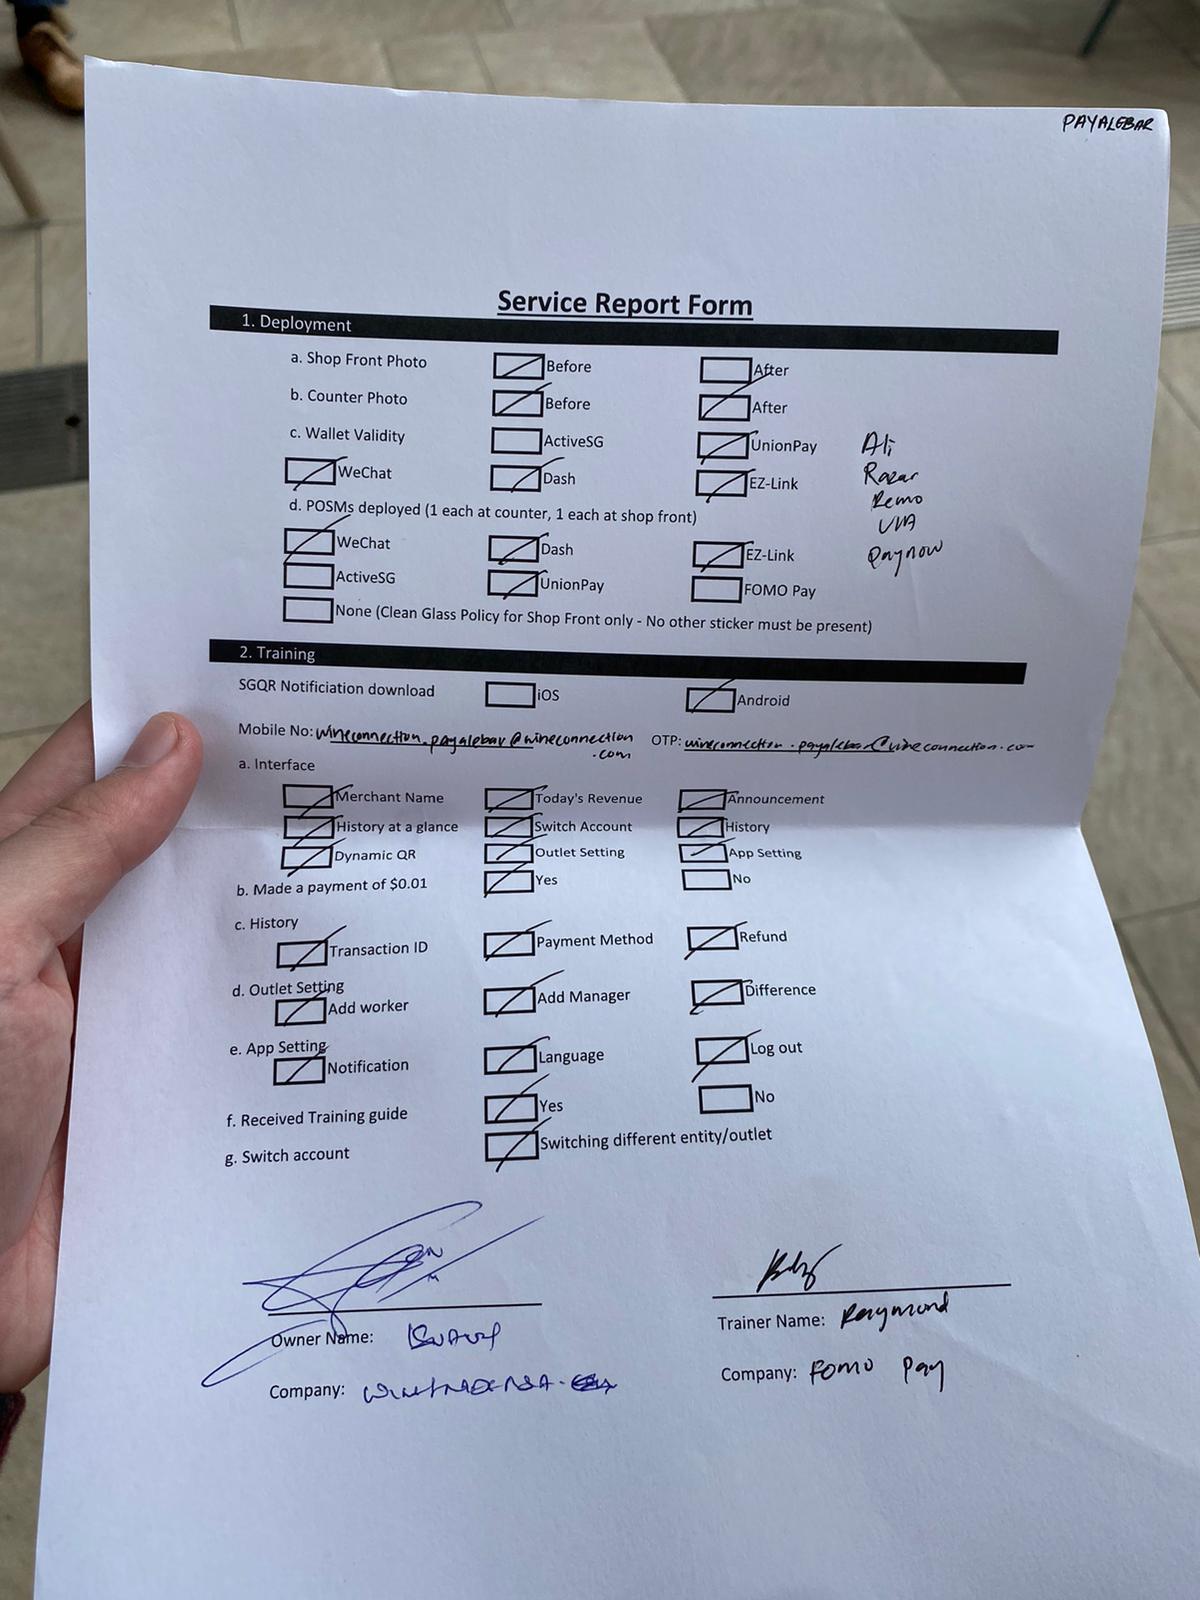 PAYALEBAR
Service Report Form
1. Deployment
a. Shop Front Photo Before After
b. Counter Photo Before After
c. Wallet Validity ActiveSG UnionPay Ali
WeChat Dash EZ-Link Razar
Remo
d. POSMs deployed (1 each at counter, 1 each at shop front)
WeChat Dash EZ-Link Paynow
ActiveSG UnionPay FOMO Pay
None (Clean Glass Policy for Shop Front only - No other sticker must be present)
2. Training
SGQR Notificiation download iOS Android
Mobile No: wineconnection.payalebar@wineconnection OTP: wineconnection.payalebar@wineconnection.com
.com
a. Interface
Merchant Name Today's Revenue Announcement
History at a glance Switch Account History
Dynamic QR Outlet Setting App Setting
b. Made a payment of $0.01 Yes No
c. History
Transaction ID Payment Method Refund
d. Outlet Setting
Add worker Add Manager Difference
e. App Setting
Notification Language Log out
f. Received Training guide Yes No
g. Switch account Switching different entity/outlet
Owner Name: Trainer Name: Raymond
Company: Company: FOMO Pay